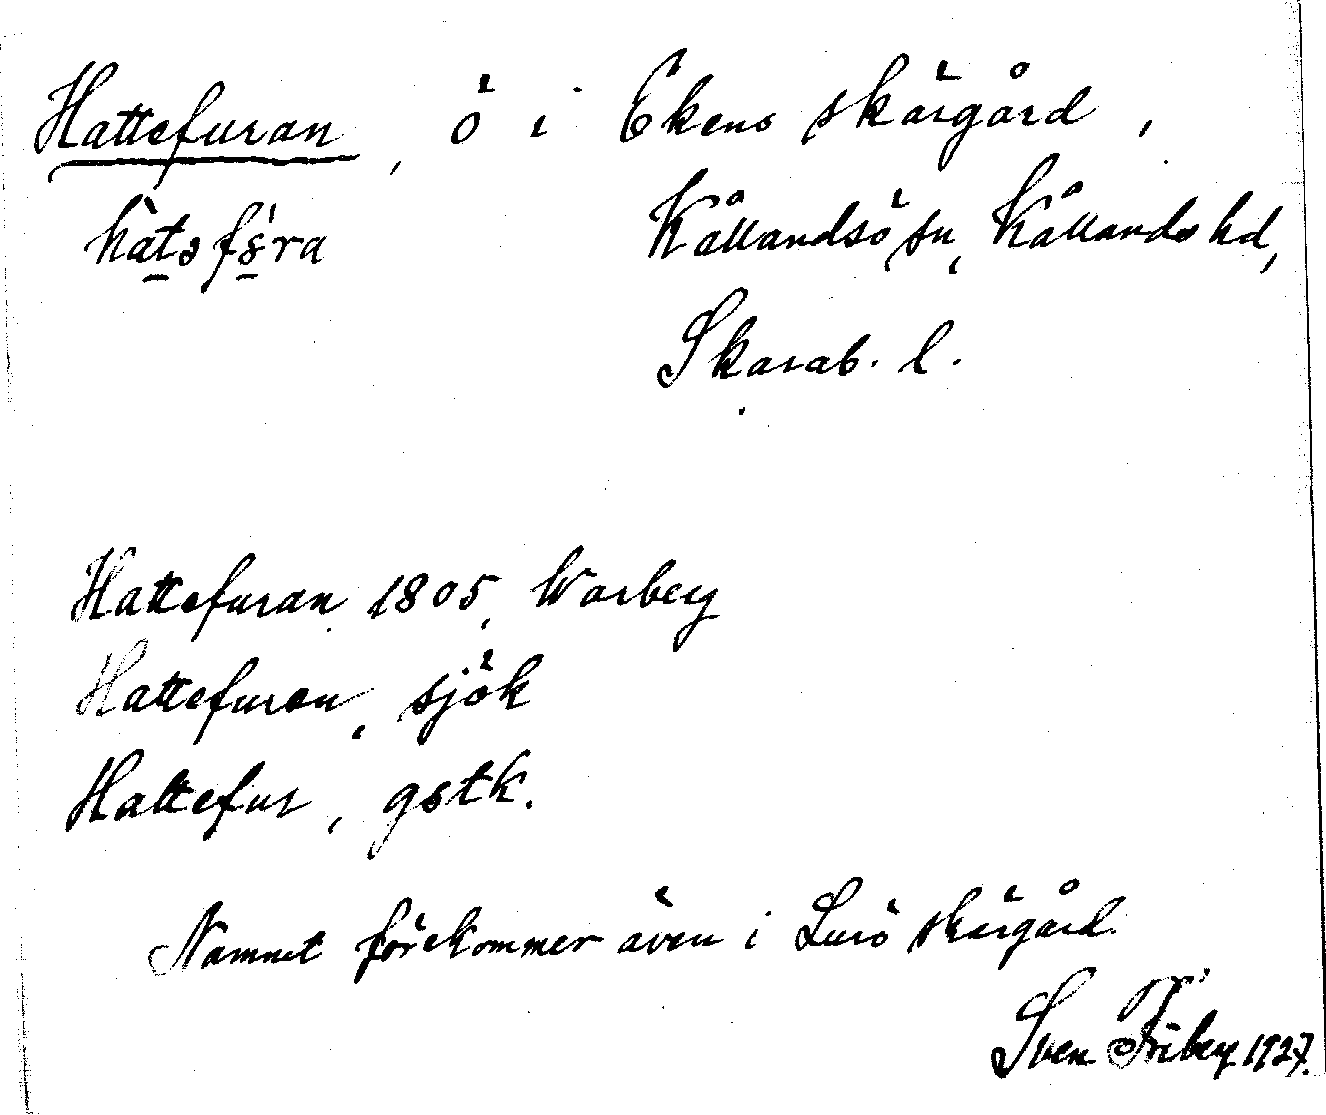 Hattefuran, ö i Ekens skärgård,
Kållandsö sn, Kållands hd,
Skarab. l.
Hattefuran 1805, Warberg
Hattefuran, sjök
Hattefur, gstk.
Namnet förekommer även i Lurö skärgård.
Sven Friberg 1927.